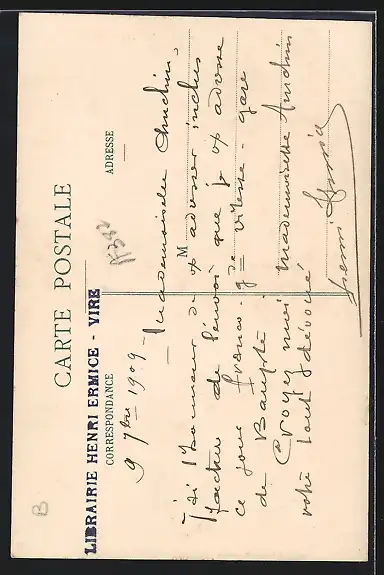 CARTE POSTALE
LIBRAIRIE HENRI ERMICE - VIRE
CORRESPONDANCE
ADRESSE
M
9 7bre 1909 - Mademoiselle
J'ai l'honneur de vs adresser inclus
facture de l'envoi que je vs adresse
ce jour franco - gde vitesse - gare
de Baupte.
Croyez moi Mademoiselle
votre tout dévoué
Henri Ermice
B